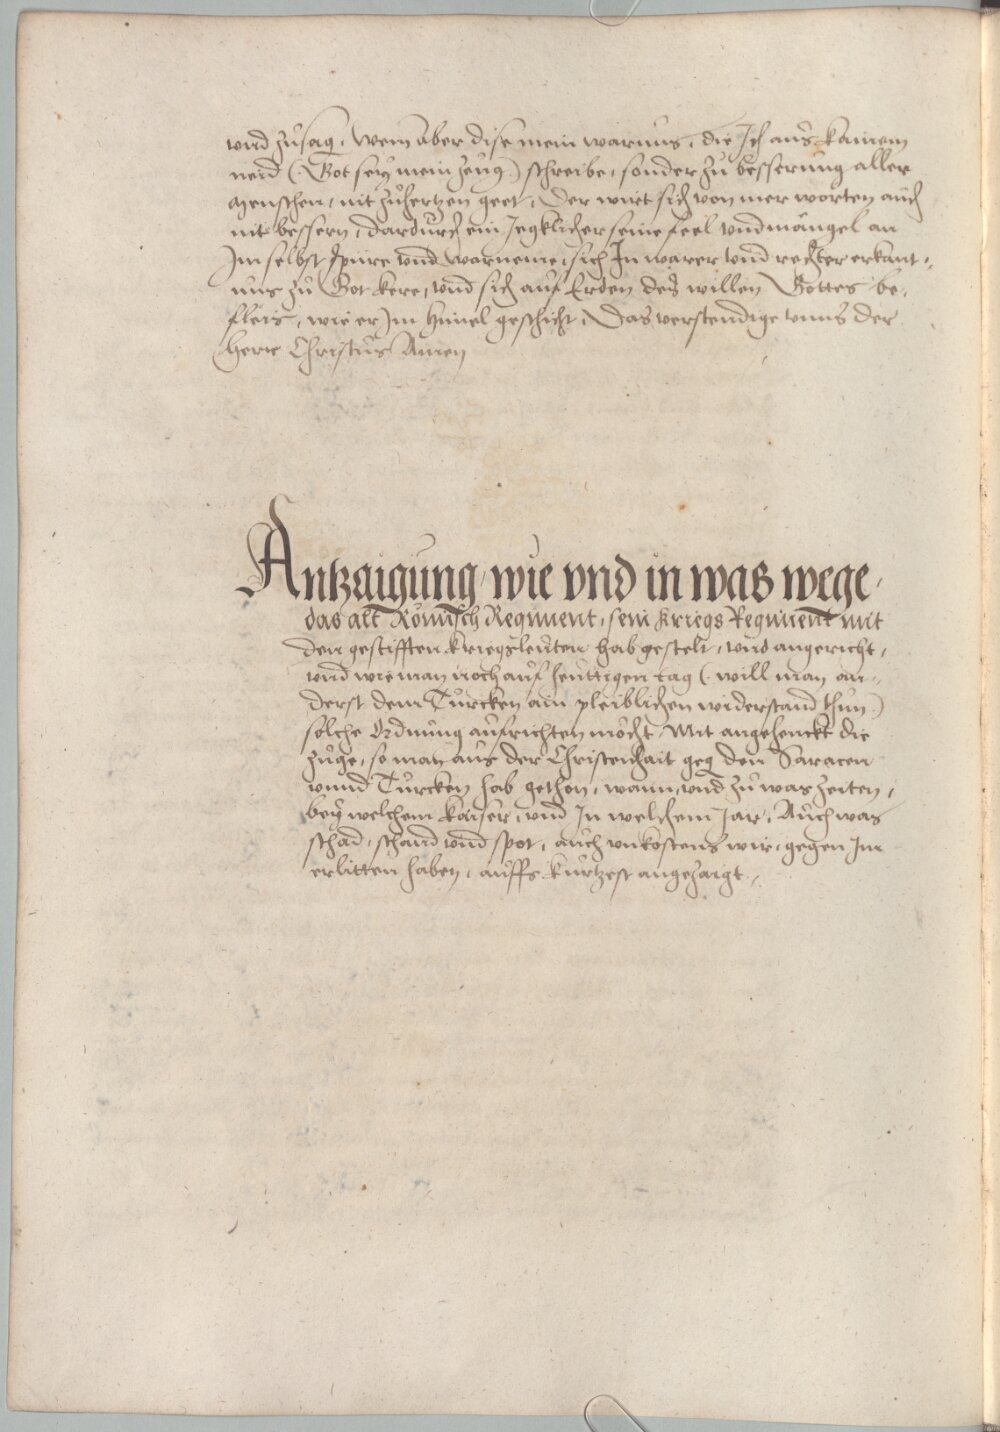 vnd zůsag. Wem aber dise mein warnůng, die Ich aůs kainem
neid (Got sey mein zeůg) schreibe, sonder zů besserung aller
menschen, nit zůhertzen geet, Der wirt sich von mer worten auch
nit bessern, dardurch ein Jegklicher seine feel vnd mångel an
Im selbst spure vnd warneme, sich In warer vnd rechter erkant-
nůs zů Got kere, vnd sich auf Erden des willen Gottes be-
fleis, wie er Im himel geschicht, Das verstendige vnns der
herre Christůs Amen
Antzaigung, wie vnd in was wege,
das alt Römisch Regiment, sein Kriegs Regiment mit
den gestifften kriegsleůten hab gestelt, vnd angericht,
vnd wie man noch auf heůttigen tag (will man an-
derst dem Türcken ain pleiblichen widerstand thůn)
solche Ordnůng aůfrichten möcht, Mit angehenckt die
zůge, so man aůs der Christenhait geg den Saracen
vnnd Türcken hab gethon, wann, vnd zů was zeiten,
bey welchem kaiser, vnd In welchem Jar, Aůch was
schad, schand vnd spot, aůch vnkostens wir, gegen Im
erlitten haben, aůffs kůrtzest angezaigt.